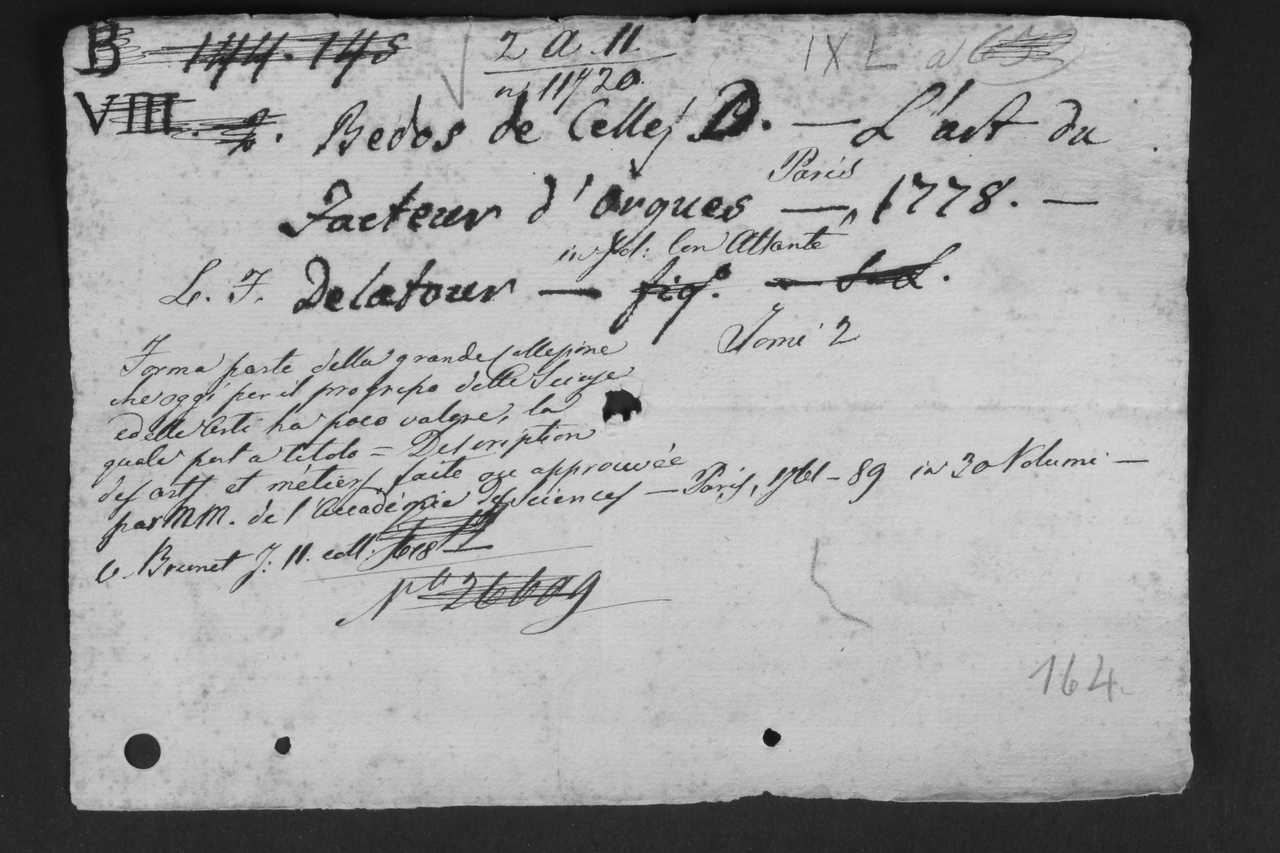 B 144. 145 2 a 11 IX L a 6
n: 11720.
VIII. 2. Bedos de Celles D. — L'art du
Paris
Facteur d'Orgues — 1778. —
in fol: Con Atlante
L. F. Delatour — fig.
Tomi 2
Forma parte della grande collezione
che oggi per il progresso delle Scienze
e delle Arti ha poco valore, la
quale porta titolo = Description
des arts et métiers, faite ou approuvée
par MM. de l'Académie des Sciences — Paris, 1761-89 in 30 Volumi —
V. Brunet T: 11. coll. 618
N.o 26609
164.